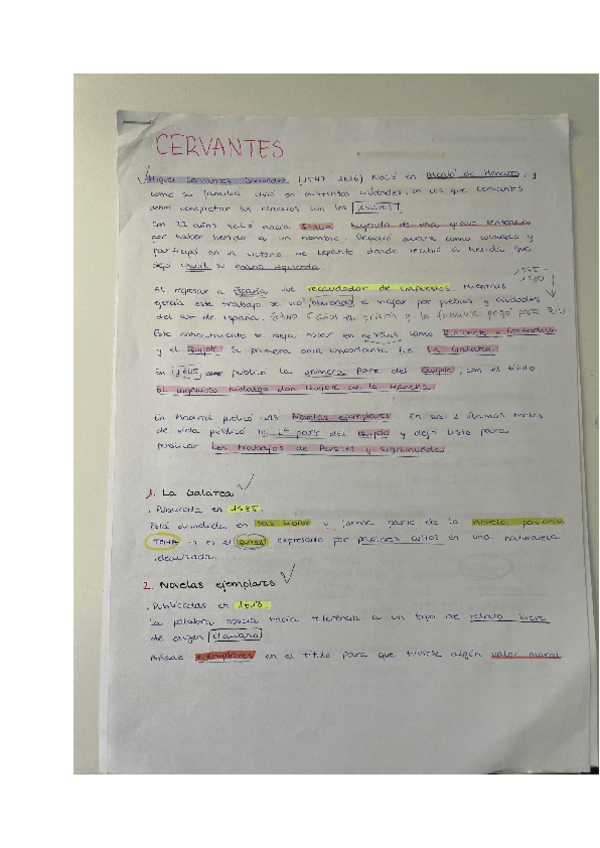 CERVANTES
Miguel Cervantes Saavedra (1547-1616) Nació en Alcalá de Henares, y
como su familia vivió en distintas ciudades, en las que Cervantes
debió completar sus estudios con los jesuitas.
Con 22 años salió hacia Italia huyendo de una grave sentencia
por haber herido a un hombre. Decidió como soldado y
participó en la victoria de Lepanto donde recibió la herida que
dejó su mano izquierda.
1575 -
1580
Al regresar a España fue recaudador de impuestos. Mientras
ejercía este trabajo se vio obligado a viajar por pueblos y ciudades
del sur de España. Estuvo 5 años en prisión y la familia pagó para
Este se refleja en novelas como Rinconete y Cortadillo
y el Quijote. Su primera obra importante fue La Galatea.
En 1605 publicó la primera parte del Quijote, con el título
El ingenioso hidalgo don Quijote de la Mancha.
En Madrid publicó las Novelas ejemplares. En sus 2 últimos
de vida publicó la 2ª parte del Quijote y dejó listo para
publicar Los trabajos de Persiles y Sigismunda.
1. La Galatea
. Publicada en 1585.
Está dividida en seis libros y forma parte de la novela pastoril
TEMA → es el amor expresado por pastores cultos en una naturaleza
idealizada.
2. Novelas ejemplares
. Publicadas en 1613.
La palabra novela hacía referencia a un tipo de relato breve
de origen italiano
Añade ejemplares en el título para que tuviese algún valor moral